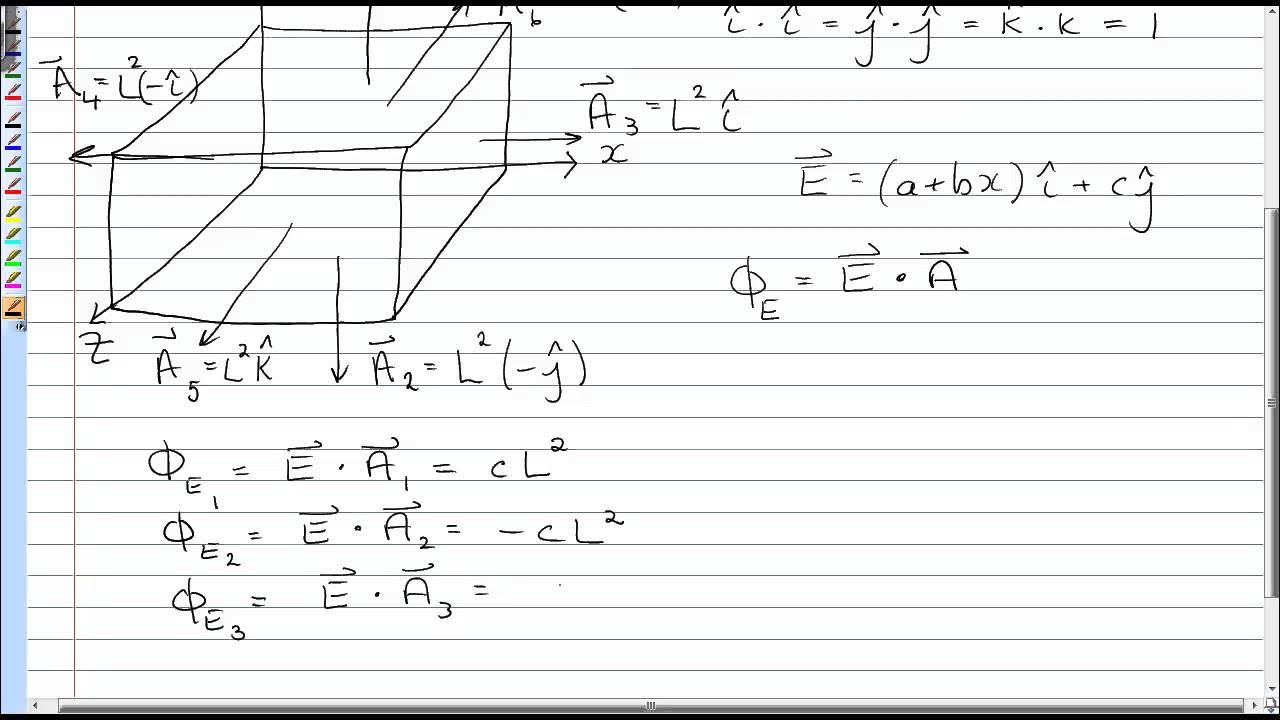 î · î = ĵ · ĵ = k̂ · k = 1
A⃗₄ = L²(-î)
A⃗₃ = L² î
x
E⃗ = (a+bx) î + cĵ
ϕ_E = E⃗ · A⃗
z
A⃗₅ = L² k̂
A⃗₂ = L² (-ĵ)
ϕ_E₁ = E⃗ · A⃗₁ = cL²
ϕ_E₂ = E⃗ · A⃗₂ = -cL²
ϕ_E₃ = E⃗ · A⃗₃ =